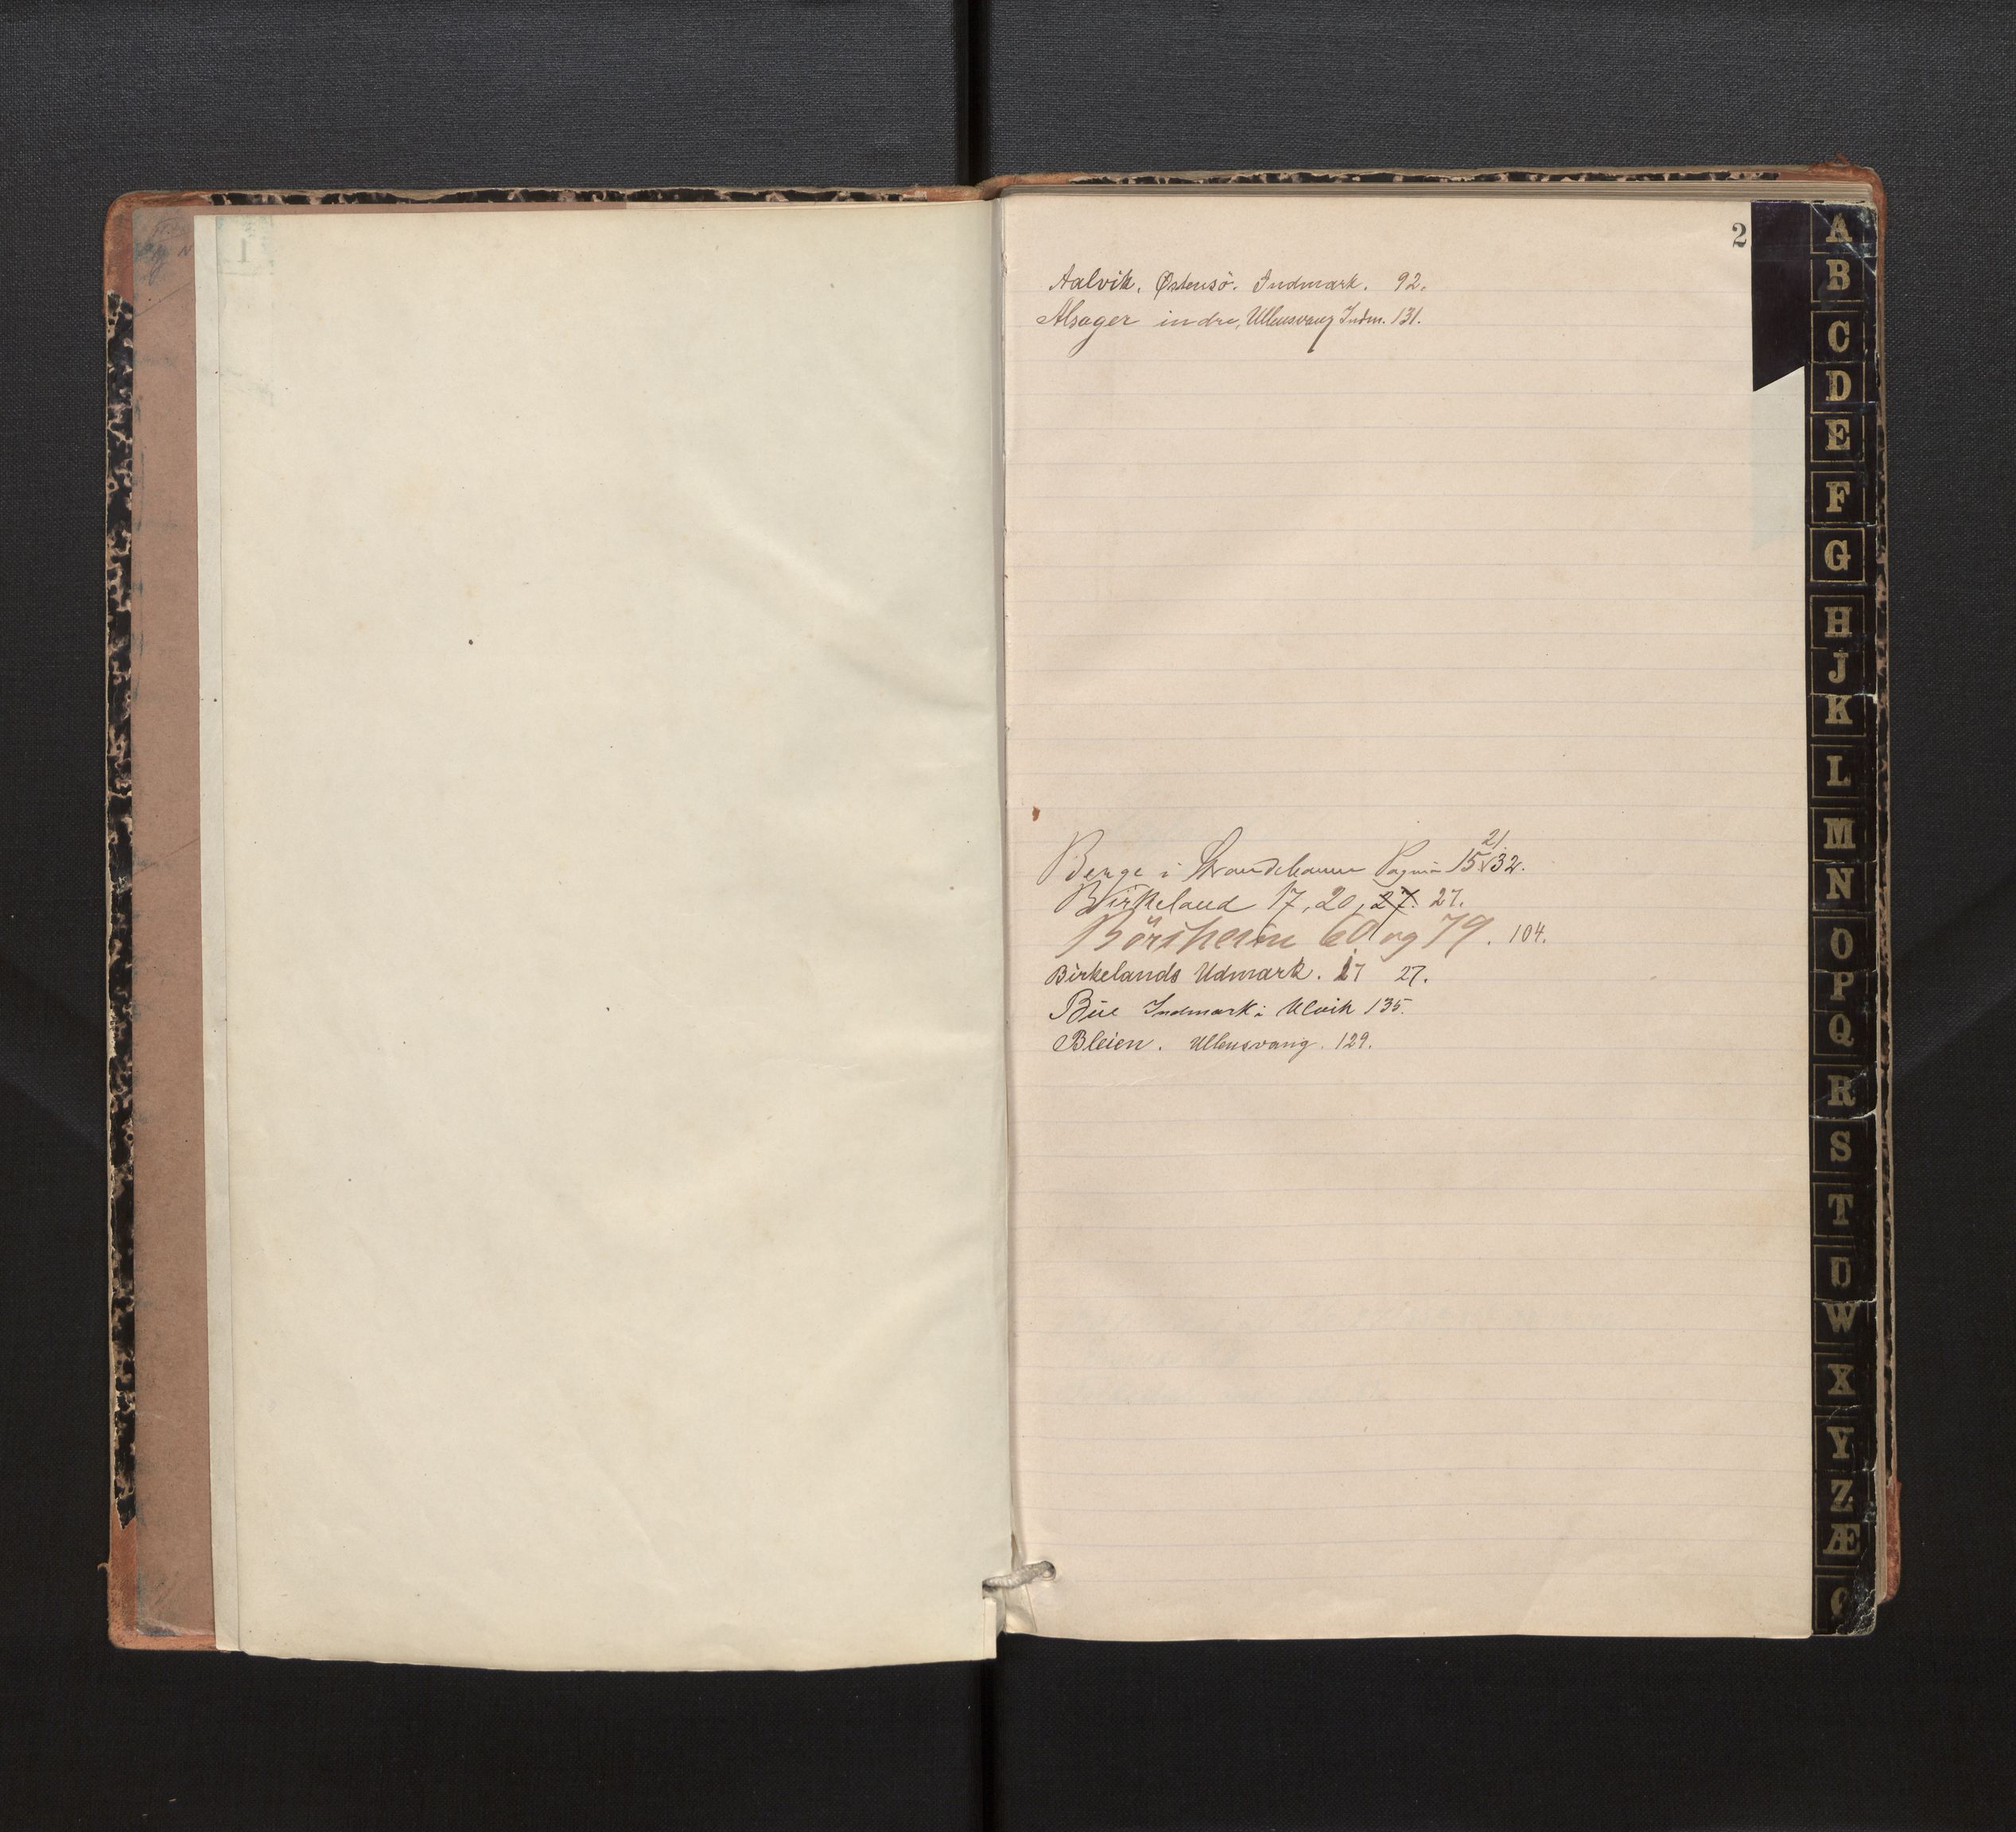 2
Aalvik, Østensö. Indmark. 92.
Alsager indre, Ullensvang Indm. 131.
21.
Berge i Strandebarm Pagina 15 32.
Birkeland 17, 20, 27. 27.
Börsheim 60 og 79. 104.
Birkelands Udmark. 27 27.
Büe Indmark i Ulvik 135.
Bleien. Ullensvang. 129.
A
B
C
D
E
F
G
H
J
K
L
M
N
O
P
Q
R
S
T
U
W
X
Y
Z
Æ
1